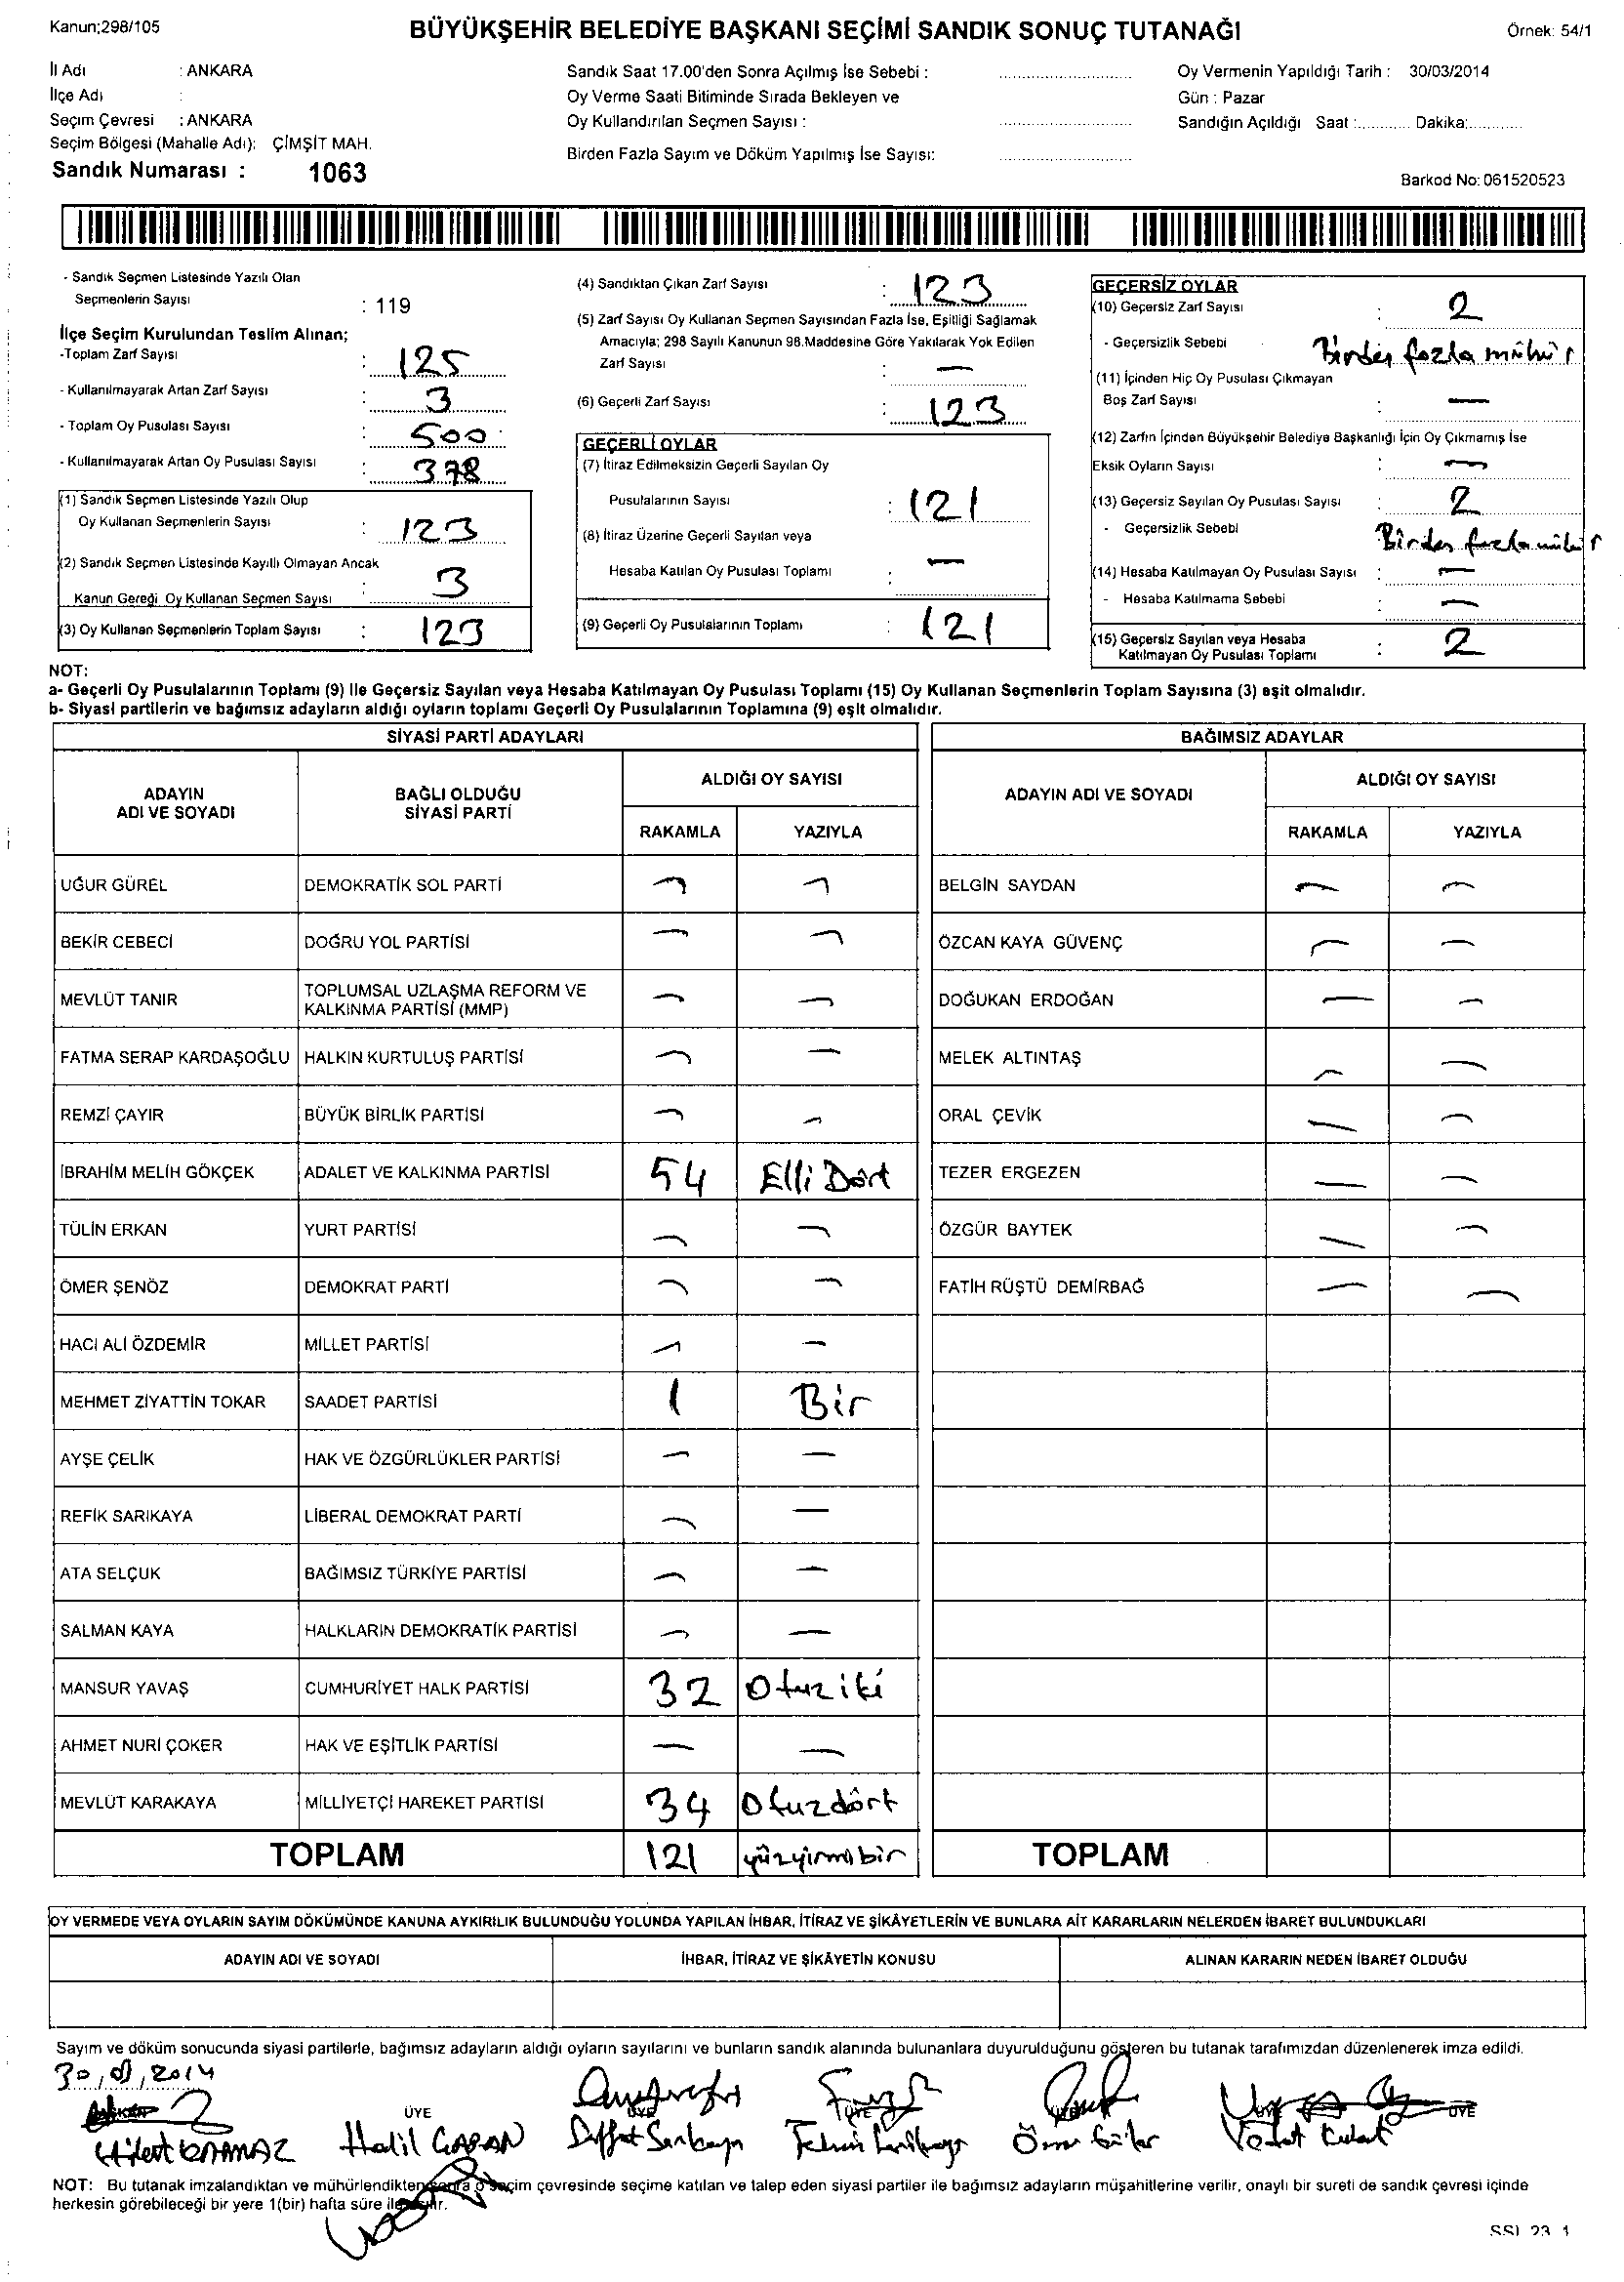 Kanun;298/105
BÜYÜKŞEHİR BELEDİYE BAŞKANI SEÇİMİ SANDIK SONUÇ TUTANAĞI
Örnek: 54/1
İl Adı : ANKARA
İlçe Adı :
Seçim Çevresi : ANKARA
Seçim Bölgesi (Mahalle Adı): ÇİMŞİT MAH.
Sandık Numarası : 1063
Sandık Saat 17.00'den Sonra Açılmış İse Sebebi :
Oy Verme Saati Bitiminde Sırada Bekleyen ve
Oy Kullandırılan Seçmen Sayısı :
Birden Fazla Sayım ve Döküm Yapılmış İse Sayısı:
Oy Vermenin Yapıldığı Tarih : 30/03/2014
Gün : Pazar
Sandığın Açıldığı Saat :............ Dakika:............
Barkod No: 061520523
- Sandık Seçmen Listesinde Yazılı Olan
Seçmenlerin Sayısı : 119
İlçe Seçim Kurulundan Teslim Alınan;
-Toplam Zarf Sayısı : 125
- Kullanılmayarak Artan Zarf Sayısı : 3
- Toplam Oy Pusulası Sayısı : 500
- Kullanılmayarak Artan Oy Pusulası Sayısı : 378
(1) Sandık Seçmen Listesinde Yazılı Olup
Oy Kullanan Seçmenlerin Sayısı : 123
(2) Sandık Seçmen Listesinde Kayıllı Olmayan Ancak
Kanun Gereği Oy Kullanan Seçmen Sayısı : 3
(3) Oy Kullanan Seçmenlerin Toplam Sayısı : 123
(4) Sandıktan Çıkan Zarf Sayısı : 123
(5) Zarf Sayısı Oy Kullanan Seçmen Sayısından Fazla İse, Eşitliği Sağlamak
Amacıyla; 298 Sayılı Kanunun 98.Maddesine Göre Yakılarak Yok Edilen
Zarf Sayısı : —
(6) Geçerli Zarf Sayısı : 123
GEÇERLİ OYLAR
(7) İtiraz Edilmeksizin Geçerli Sayılan Oy
Pusulalarının Sayısı : 121
(8) İtiraz Üzerine Geçerli Sayılan veya
Hesaba Katılan Oy Pusulası Toplamı : —
(9) Geçerli Oy Pusulalarının Toplamı : 121
GEÇERSİZ OYLAR
(10) Geçersiz Zarf Sayısı : 2
- Geçersizlik Sebebi Birden fazla mühür
(11) İçinden Hiç Oy Pusulası Çıkmayan
Boş Zarf Sayısı : —
(12) Zarfın İçinden Büyükşehir Belediye Başkanlığı İçin Oy Çıkmamış İse
Eksik Oyların Sayısı : —
(13) Geçersiz Sayılan Oy Pusulası Sayısı : 2
- Geçersizlik Sebebi Birden fazla mühür
(14) Hesaba Katılmayan Oy Pusulası Sayısı : —
- Hesaba Katılmama Sebebi : —
(15) Geçersiz Sayılan veya Hesaba
Katılmayan Oy Pusulası Toplamı : 2
NOT:
a- Geçerli Oy Pusulalarının Toplamı (9) İle Geçersiz Sayılan veya Hesaba Katılmayan Oy Pusulası Toplamı (15) Oy Kullanan Seçmenlerin Toplam Sayısına (3) eşit olmalıdır.
b- Siyasi partilerin ve bağımsız adayların aldığı oyların toplamı Geçerli Oy Pusulalarının Toplamına (9) eşit olmalıdır.
SİYASİ PARTİ ADAYLARI
ADAYIN ADI VE SOYADI
BAĞLI OLDUĞU SİYASİ PARTİ
ALDIĞI OY SAYISI
RAKAMLA YAZIYLA
UĞUR GÜREL DEMOKRATİK SOL PARTİ — —
BEKİR CEBECİ DOĞRU YOL PARTİSİ — —
MEVLÜT TANIR TOPLUMSAL UZLAŞMA REFORM VE
KALKINMA PARTİSİ (MMP) — —
FATMA SERAP KARDAŞOĞLU HALKIN KURTULUŞ PARTİSİ — —
REMZİ ÇAYIR BÜYÜK BİRLİK PARTİSİ — —
İBRAHİM MELİH GÖKÇEK ADALET VE KALKINMA PARTİSİ 54 Elli Dört
TÜLİN ERKAN YURT PARTİSİ — —
ÖMER ŞENÖZ DEMOKRAT PARTİ — —
HACI ALİ ÖZDEMİR MİLLET PARTİSİ — —
MEHMET ZİYATTİN TOKAR SAADET PARTİSİ 1 Bir
AYŞE ÇELİK HAK VE ÖZGÜRLÜKLER PARTİSİ — —
REFİK SARIKAYA LİBERAL DEMOKRAT PARTİ — —
ATA SELÇUK BAĞIMSIZ TÜRKİYE PARTİSİ — —
SALMAN KAYA HALKLARIN DEMOKRATİK PARTİSİ — —
MANSUR YAVAŞ CUMHURİYET HALK PARTİSİ 32 Otuz iki
AHMET NURİ ÇOKER HAK VE EŞİTLİK PARTİSİ — —
MEVLÜT KARAKAYA MİLLİYETÇİ HAREKET PARTİSİ 34 Otuzdört
TOPLAM 121 yüzyirmibir
BAĞIMSIZ ADAYLAR
ADAYIN ADI VE SOYADI
ALDIĞI OY SAYISI
RAKAMLA YAZIYLA
BELGİN SAYDAN — —
ÖZCAN KAYA GÜVENÇ — —
DOĞUKAN ERDOĞAN — —
MELEK ALTINTAŞ — —
ORAL ÇEVİK — —
TEZER ERGEZEN — —
ÖZGÜR BAYTEK — —
FATİH RÜŞTÜ DEMİRBAĞ — —
TOPLAM
OY VERMEDE VEYA OYLARIN SAYIM DÖKÜMÜNDE KANUNA AYKIRILIK BULUNDUĞU YOLUNDA YAPILAN İHBAR, İTİRAZ VE ŞİKÂYETLERİN VE BUNLARA AİT KARARLARIN NELERDEN İBARET BULUNDUKLARI
ADAYIN ADI VE SOYADI İHBAR, İTİRAZ VE ŞİKÂYETİN KONUSU ALINAN KARARIN NEDEN İBARET OLDUĞU
Sayım ve döküm sonucunda siyasi partilerle, bağımsız adayların aldığı oyların sayılarını ve bunların sandık alanında bulunanlara duyurulduğunu gösteren bu tutanak tarafımızdan düzenlenerek imza edildi.
2014
BAŞKAN ÜYE ÜYE ÜYE ÜYE
Halil
NOT: Bu tutanak imzalandıktan ve mühürlendikten sonra o seçim çevresinde seçime katılan ve talep eden siyasi partiler ile bağımsız adayların müşahitlerine verilir, onaylı bir sureti de sandık çevresi içinde
herkesin görebileceği bir yere 1(bir) hafta süre ile asılır.